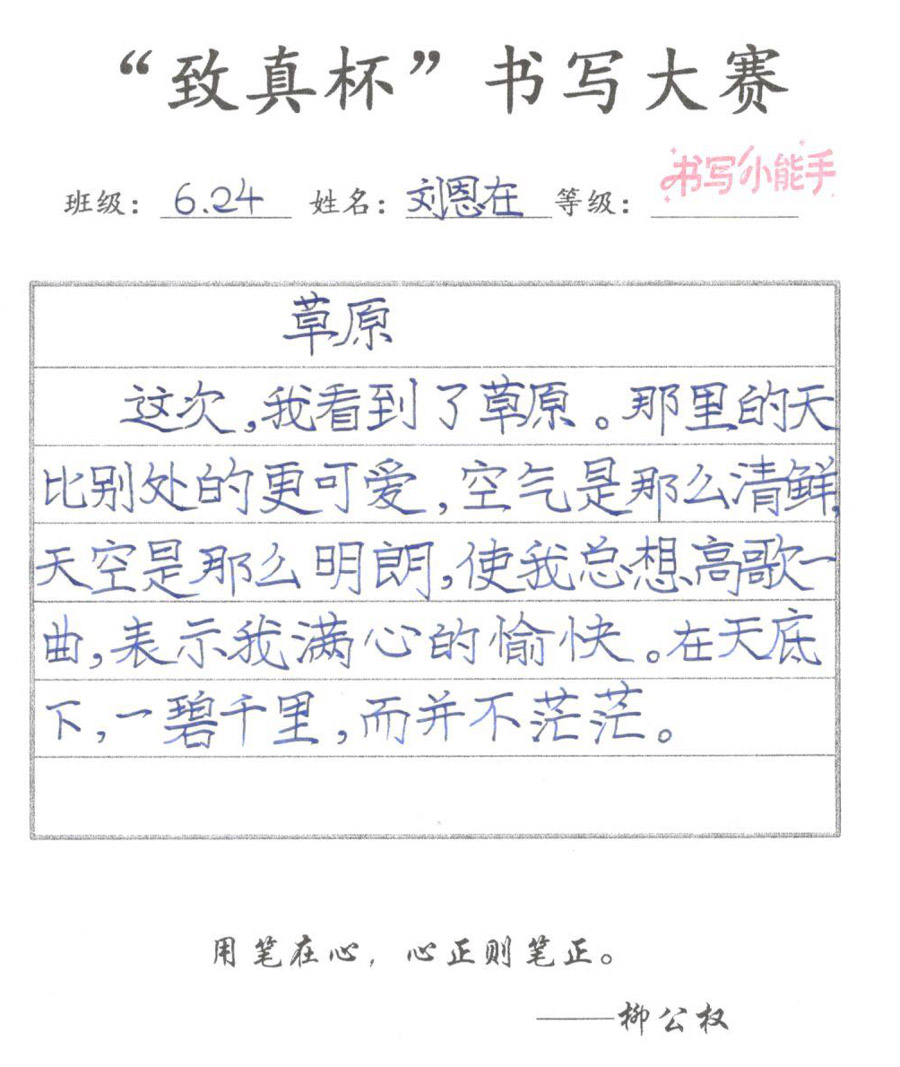 “致真杯”书写大赛
书写小能手
班级：6.24 姓名：刘恩在 等级：
草原
这次,我看到了草原。那里的天
比别处的更可爱,空气是那么清鲜,
天空是那么明朗,使我总想高歌一
曲,表示我满心的愉快。在天底
下,一碧千里,而并不茫茫。
用笔在心，心正则笔正。
——柳公权